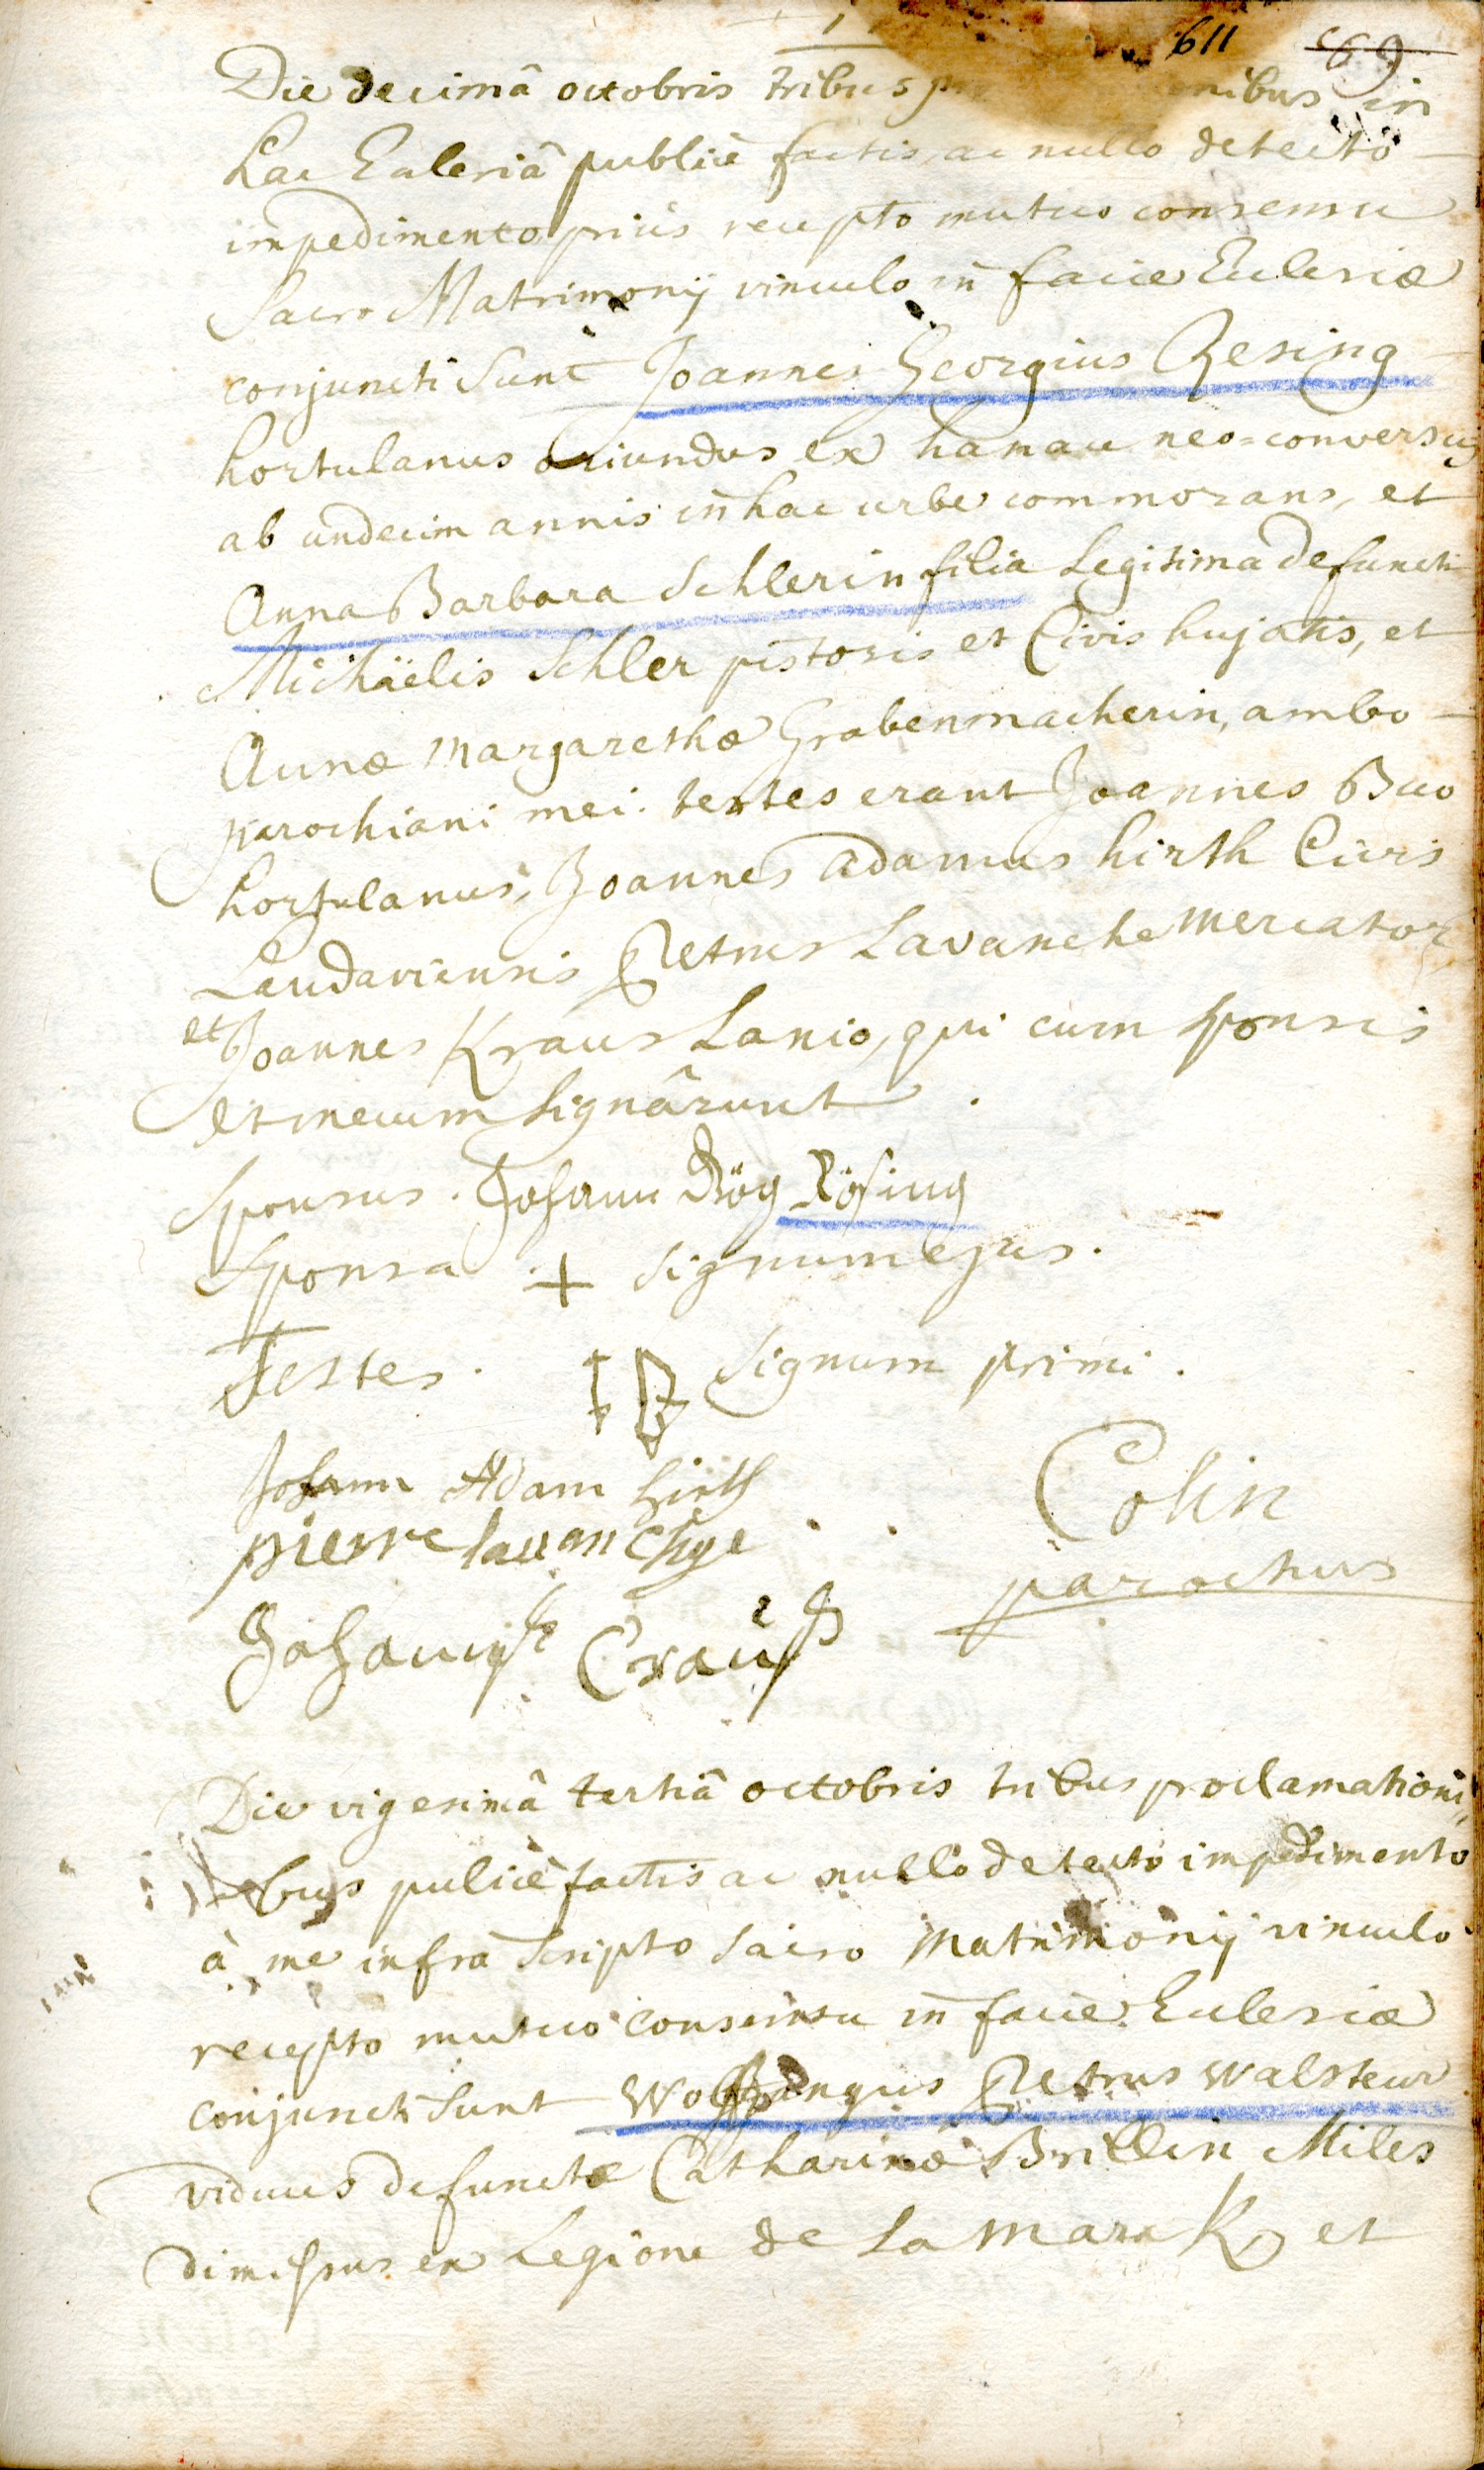 611 69
Die decimâ octobris tribus in
hac Eclesiâ publicè factis, ac nullo detecto
impedimento prius recepto mutuo consensu
Sacro Matrimonij vinculo in facie Eclesiæ
conjuncti Sunt Joannes Georgius Resing
hortulanus oriundus ex hanau neo=conversus
ab undecim annis in hac urbe commorans, et
Anna Barbara Schlerin filia Legitima defuncti
Michäelis Schler pistoris et Civis hujatis, et
Annæ Margarethæ Grabenmacherin, ambo
parochiani mei. testes erant Joannes Buo
hortulanus, Joannes Adamus hirth Civis
Landaviensis Petrus Lavanche Mercator
et Joannes Kraus Lanio, qui cum sponsis
et mecum signârunt.
Sponsus. Johann Rösing
Sponsa + signum ejus.
Testes. I B Signum primi.
Johann Adam hirth
pierre lauanchye
Colin
parochus
Crauß
Die vigesimâ tertiâ octobris tribus proclamationi,,
bus pulicè factis ac nullo detecto impedimento
à me infrà scripto Sacro Matrimonij vinculo
recepto mutuo consensu in facie Eclesiæ
conjuncti Sunt Wolfgangus Petrus Walsteur
viduus defunctæ Catharinæ Brillin Miles
dimissus ex Legione de La Mark et